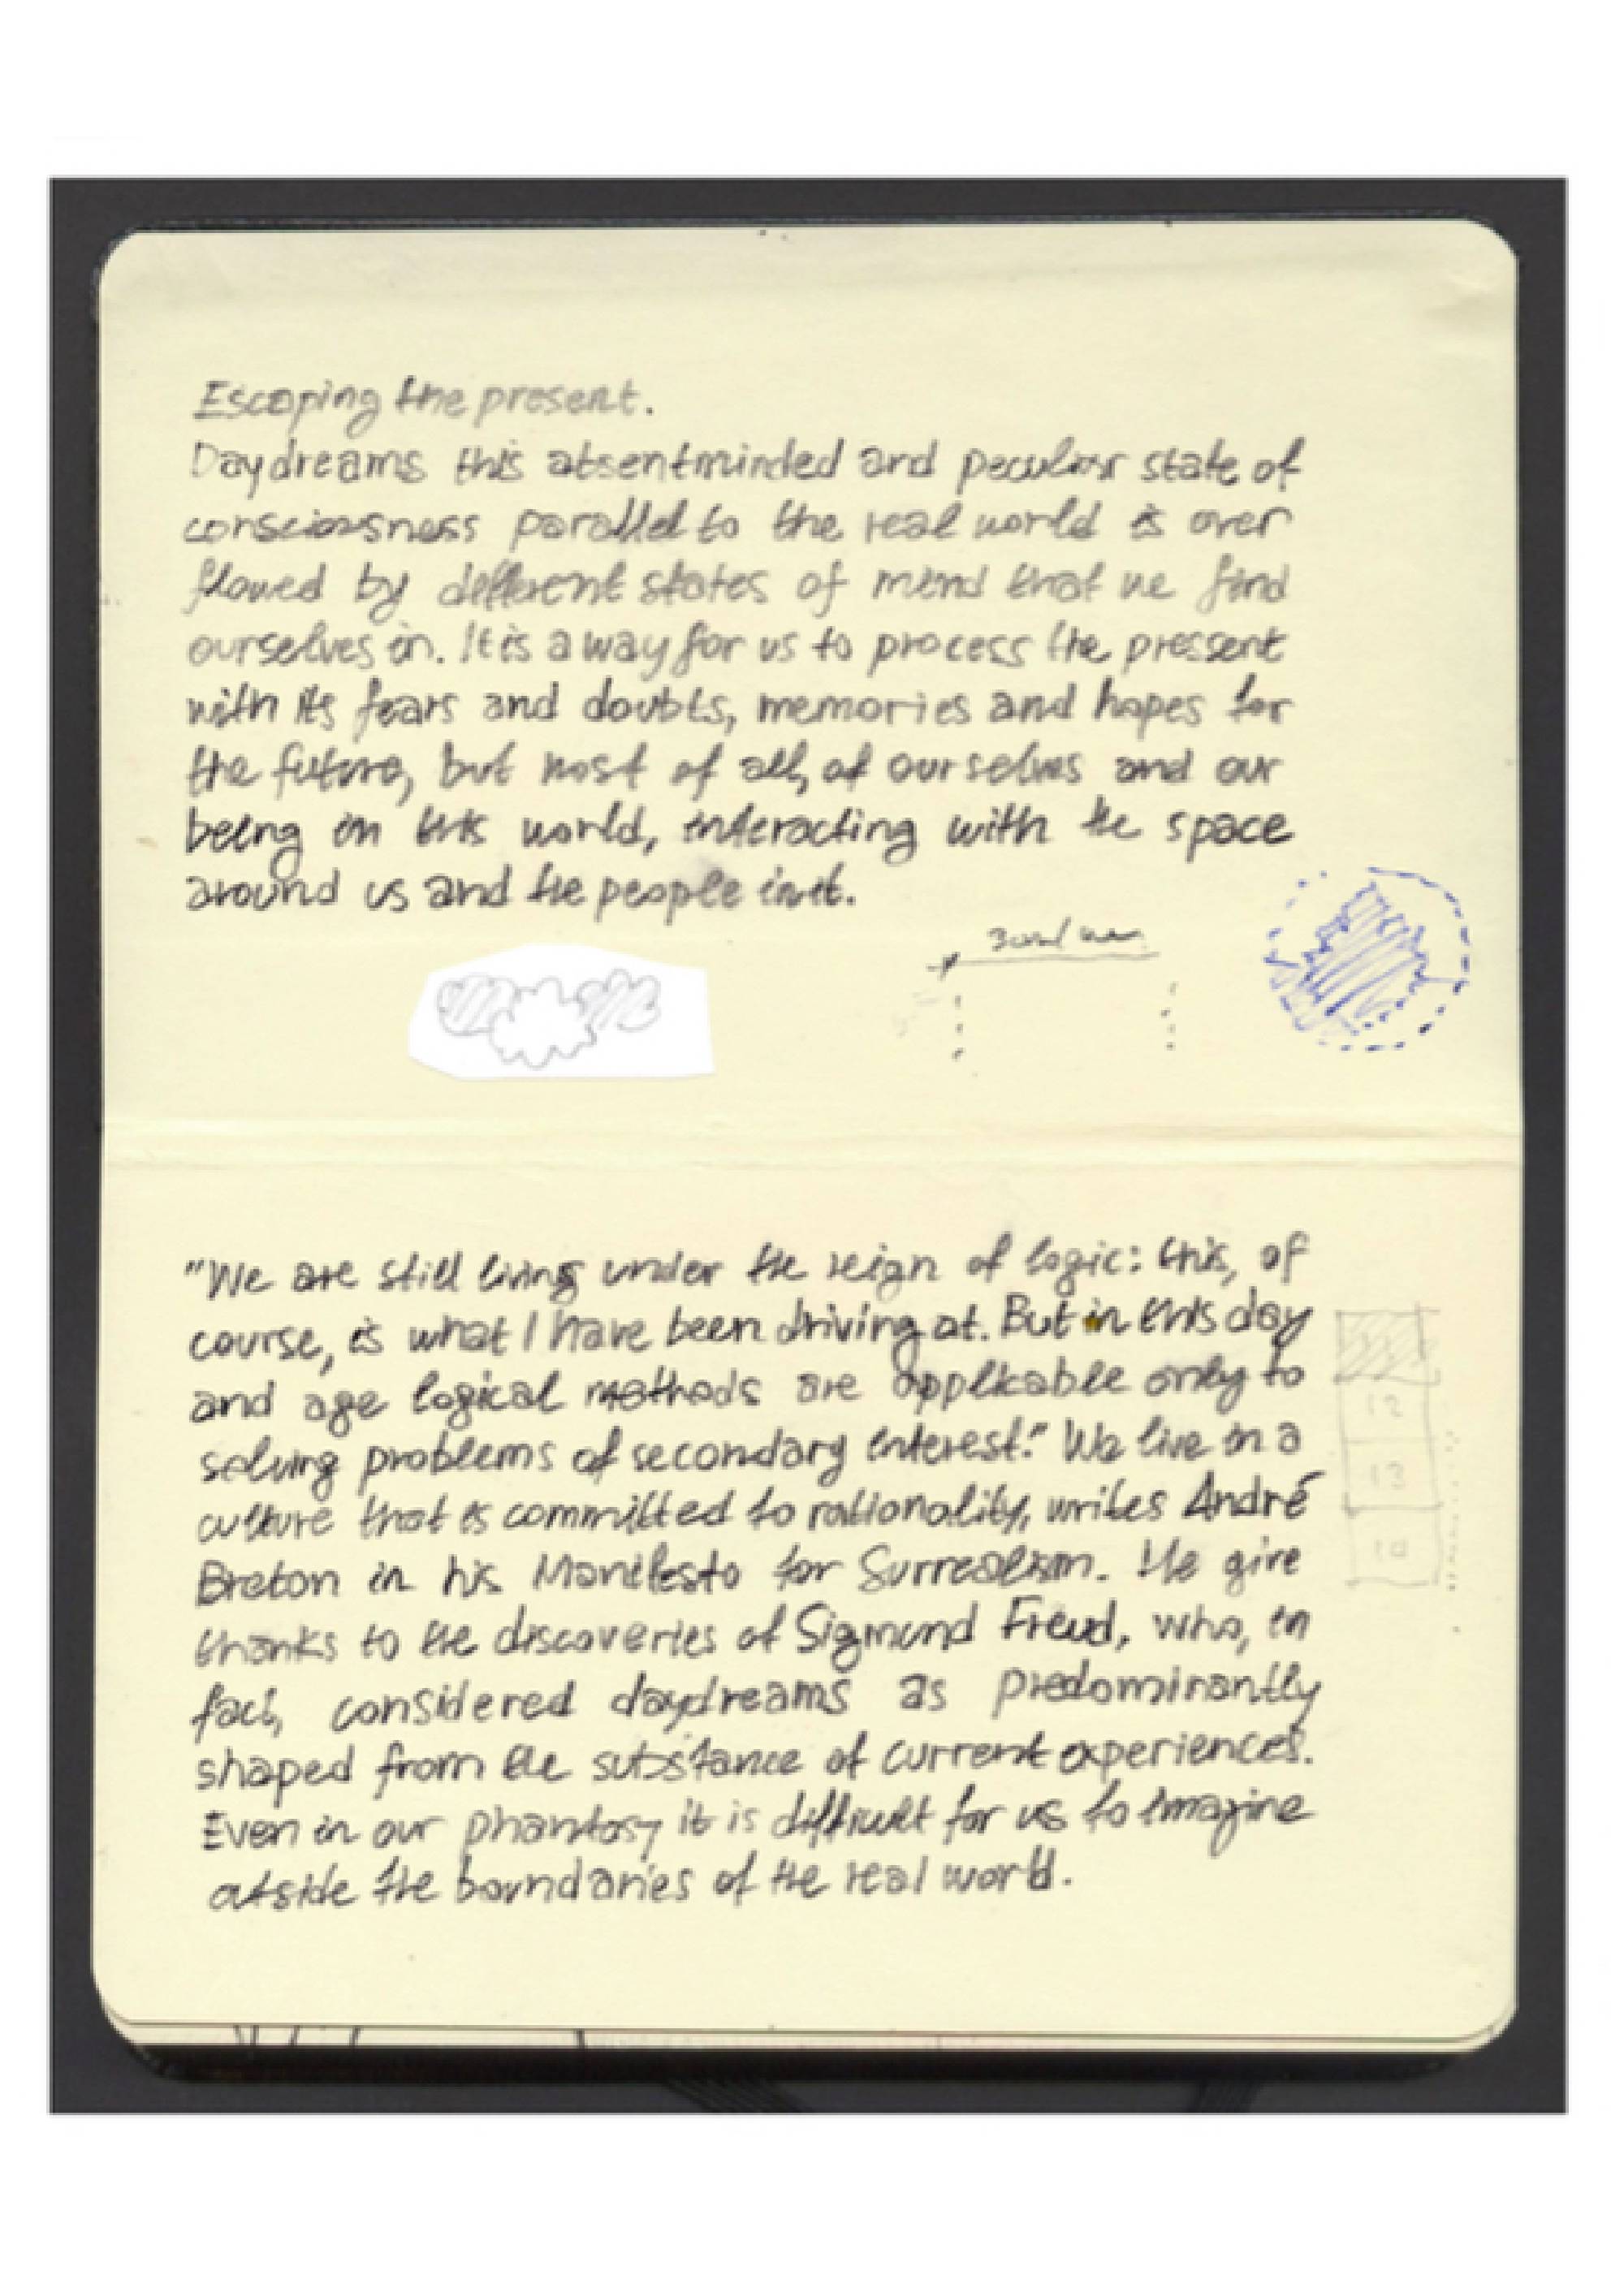 Escaping the present.
Daydreams this absentminded and peculiar state of
consciousness parallel to the real world is over
flowed by different states of mind that we find
ourselves in. It is a way for us to process the pressent
with its fears and doubts, memories and hopes for
the future, but most of all, of ourselves and our
being in this world, interacting with the space
around us and the people in it.
"We are still living under the reign of logic: this, of
course, is what I have been driving at. But in this day
and age logical methods are applicable only to
solving problems of secondary interest." We live in a
culture that is committed to rationality, writes André
Breton in his Manifesto for Surrealism. He give
thanks to the discoveries of Sigmund Freud, who, in
fact, considered daydreams as predominantly
shaped from the substance of current experiences.
Even in our phantasy it is difficult for us to imagine
outside the boundaries of the real world.
12
13
14